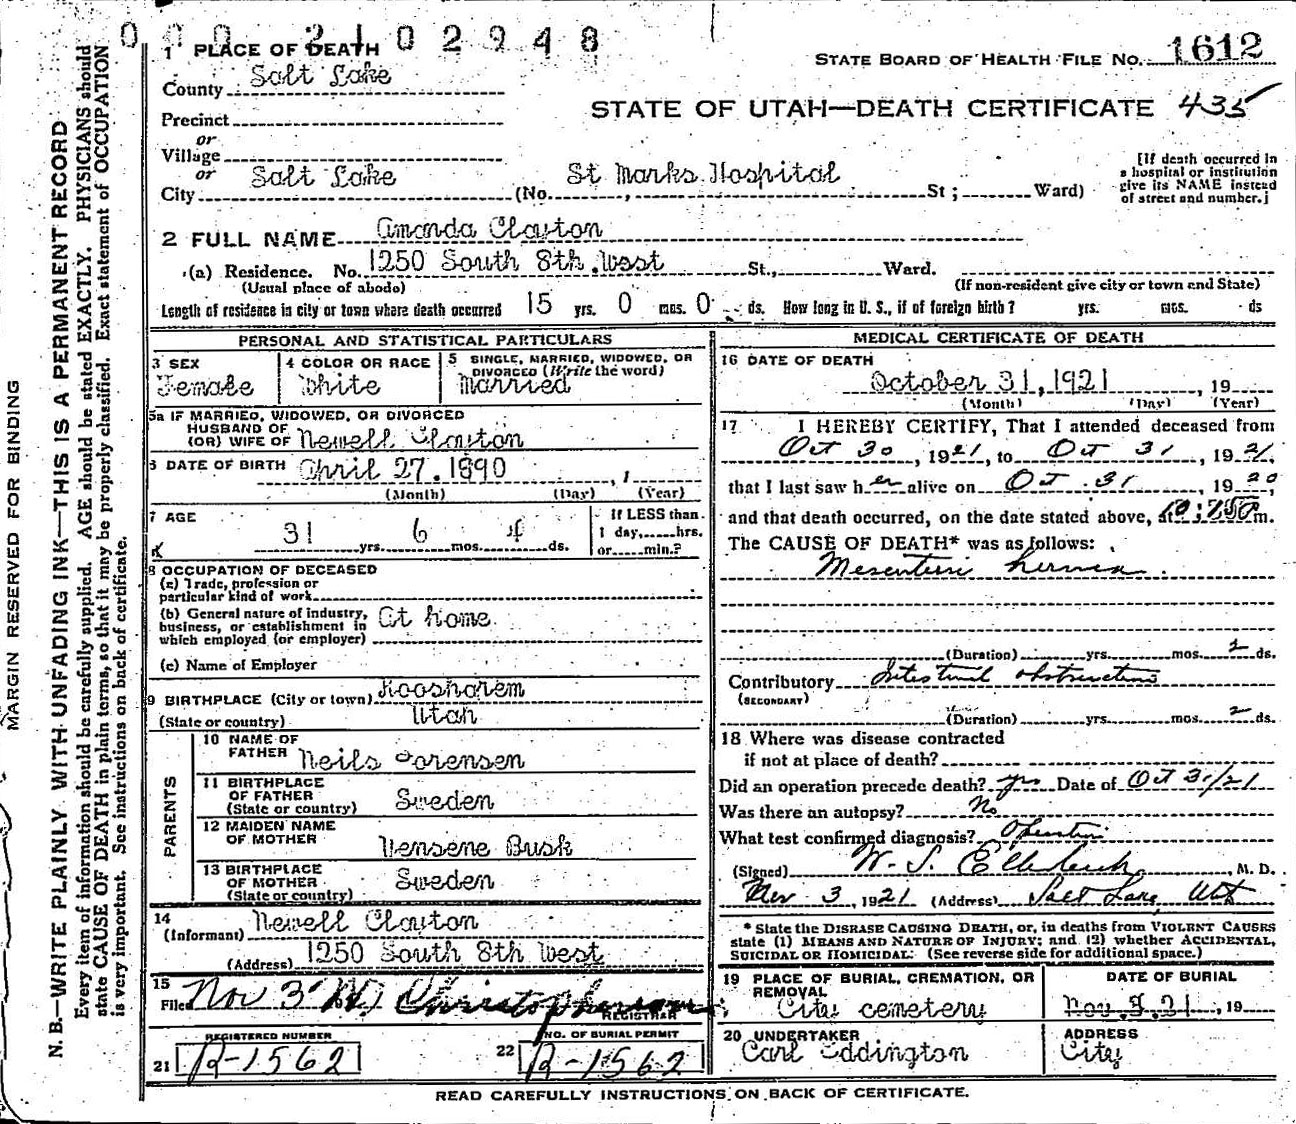 0 0 0 2 1 0 2 9 4 8
1 PLACE OF DEATH
STATE BOARD OF HEALTH FILE NO. 1612
County Salt Lake
STATE OF UTAH—DEATH CERTIFICATE 435
Precinct
or
Village
or
City Salt Lake (No. St Marks Hospital St ; Ward)
[If death occurred in
a hospital or institution
give its NAME instead
of street and number.]
2 FULL NAME Amanda Clayton
(a) Residence. No. 1250 South 8th West St., Ward.
(Usual place of abode) (If non-resident give city or town and State)
Length of residence in city or town where death occurred 15 yrs. 0 mos. 0 ds. How long in U. S., if of foreign birth? yrs. mos. ds
PERSONAL AND STATISTICAL PARTICULARS
3 SEX Female
4 COLOR OR RACE White
5 SINGLE, MARRIED, WIDOWED, OR
DIVORCED (Write the word)
Married
5a IF MARRIED, WIDOWED, OR DIVORCED
HUSBAND OF
(OR) WIFE OF Newell Clayton
6 DATE OF BIRTH April 27. 1890
(Month) (Day) (Year)
7 AGE
31 yrs. 6 mos. 4 ds.
If LESS than
1 day, hrs.
or min.?
8 OCCUPATION OF DECEASED
(a) Trade, profession or
particular kind of work
(b) General nature of industry,
business, or establishment in
which employed (or employer) At home
(c) Name of Employer
9 BIRTHPLACE (City or town) Koosharem
(State or country) Utah
PARENTS
10 NAME OF
FATHER Neils Sorensen
11 BIRTHPLACE
OF FATHER
(State or country) Sweden
12 MAIDEN NAME
OF MOTHER Busk
13 BIRTHPLACE
OF MOTHER
(State or country) Sweden
14
(Informant) Newell Clayton
(Address) 1250 South 8th West
15
Filed Nov 3 Christopherson
REGISTRAR
REGISTERED NUMBER
21 R-1562
NO. OF BURIAL PERMIT
22 R-1562
MEDICAL CERTIFICATE OF DEATH
16 DATE OF DEATH
October 31, 1921, 19
(Month) (Day) (Year)
17 I HEREBY CERTIFY, That I attended deceased from
Oct 30, 1921, to Oct 31, 1921,
that I last saw her alive on Oct 31, 1920
and that death occurred, on the date stated above, at m.
The CAUSE OF DEATH* was as follows:
(Duration) yrs. mos. 2 ds.
Contributory Intestinal obstruction
(SECONDARY)
(Duration) yrs. mos. 2 ds.
18 Where was disease contracted
if not at place of death?
Did an operation precede death? yes Date of Oct 31/21
Was there an autopsy? No
What test confirmed diagnosis? Operation
(Signed) W. S. Ellerbeck, M. D.
Nov 3, 1921 (Address) Salt Lake, Utah
* State the DISEASE CAUSING DEATH, or, in deaths from VIOLENT CAUSES
state (1) MEANS AND NATURE OF INJURY; and (2) whether ACCIDENTAL,
SUICIDAL OR HOMICIDAL. (See reverse side for additional space.)
19 PLACE OF BURIAL, CREMATION, OR
REMOVAL
City cemetery
DATE OF BURIAL
Nov. 3. 21, 19
20 UNDERTAKER
Carl Eddington
ADDRESS
City
READ CAREFULLY INSTRUCTIONS ON BACK OF CERTIFICATE.
MARGIN RESERVED FOR BINDING
N. B.—WRITE PLAINLY WITH UNFADING INK—THIS IS A PERMANENT RECORD
Every item of information should be carefully supplied. AGE should be stated EXACTLY. PHYSICIANS should
state CAUSE OF DEATH in plain terms, so that it may be properly classified. Exact statement of OCCUPATION
is very important. See instructions on back of certificate.